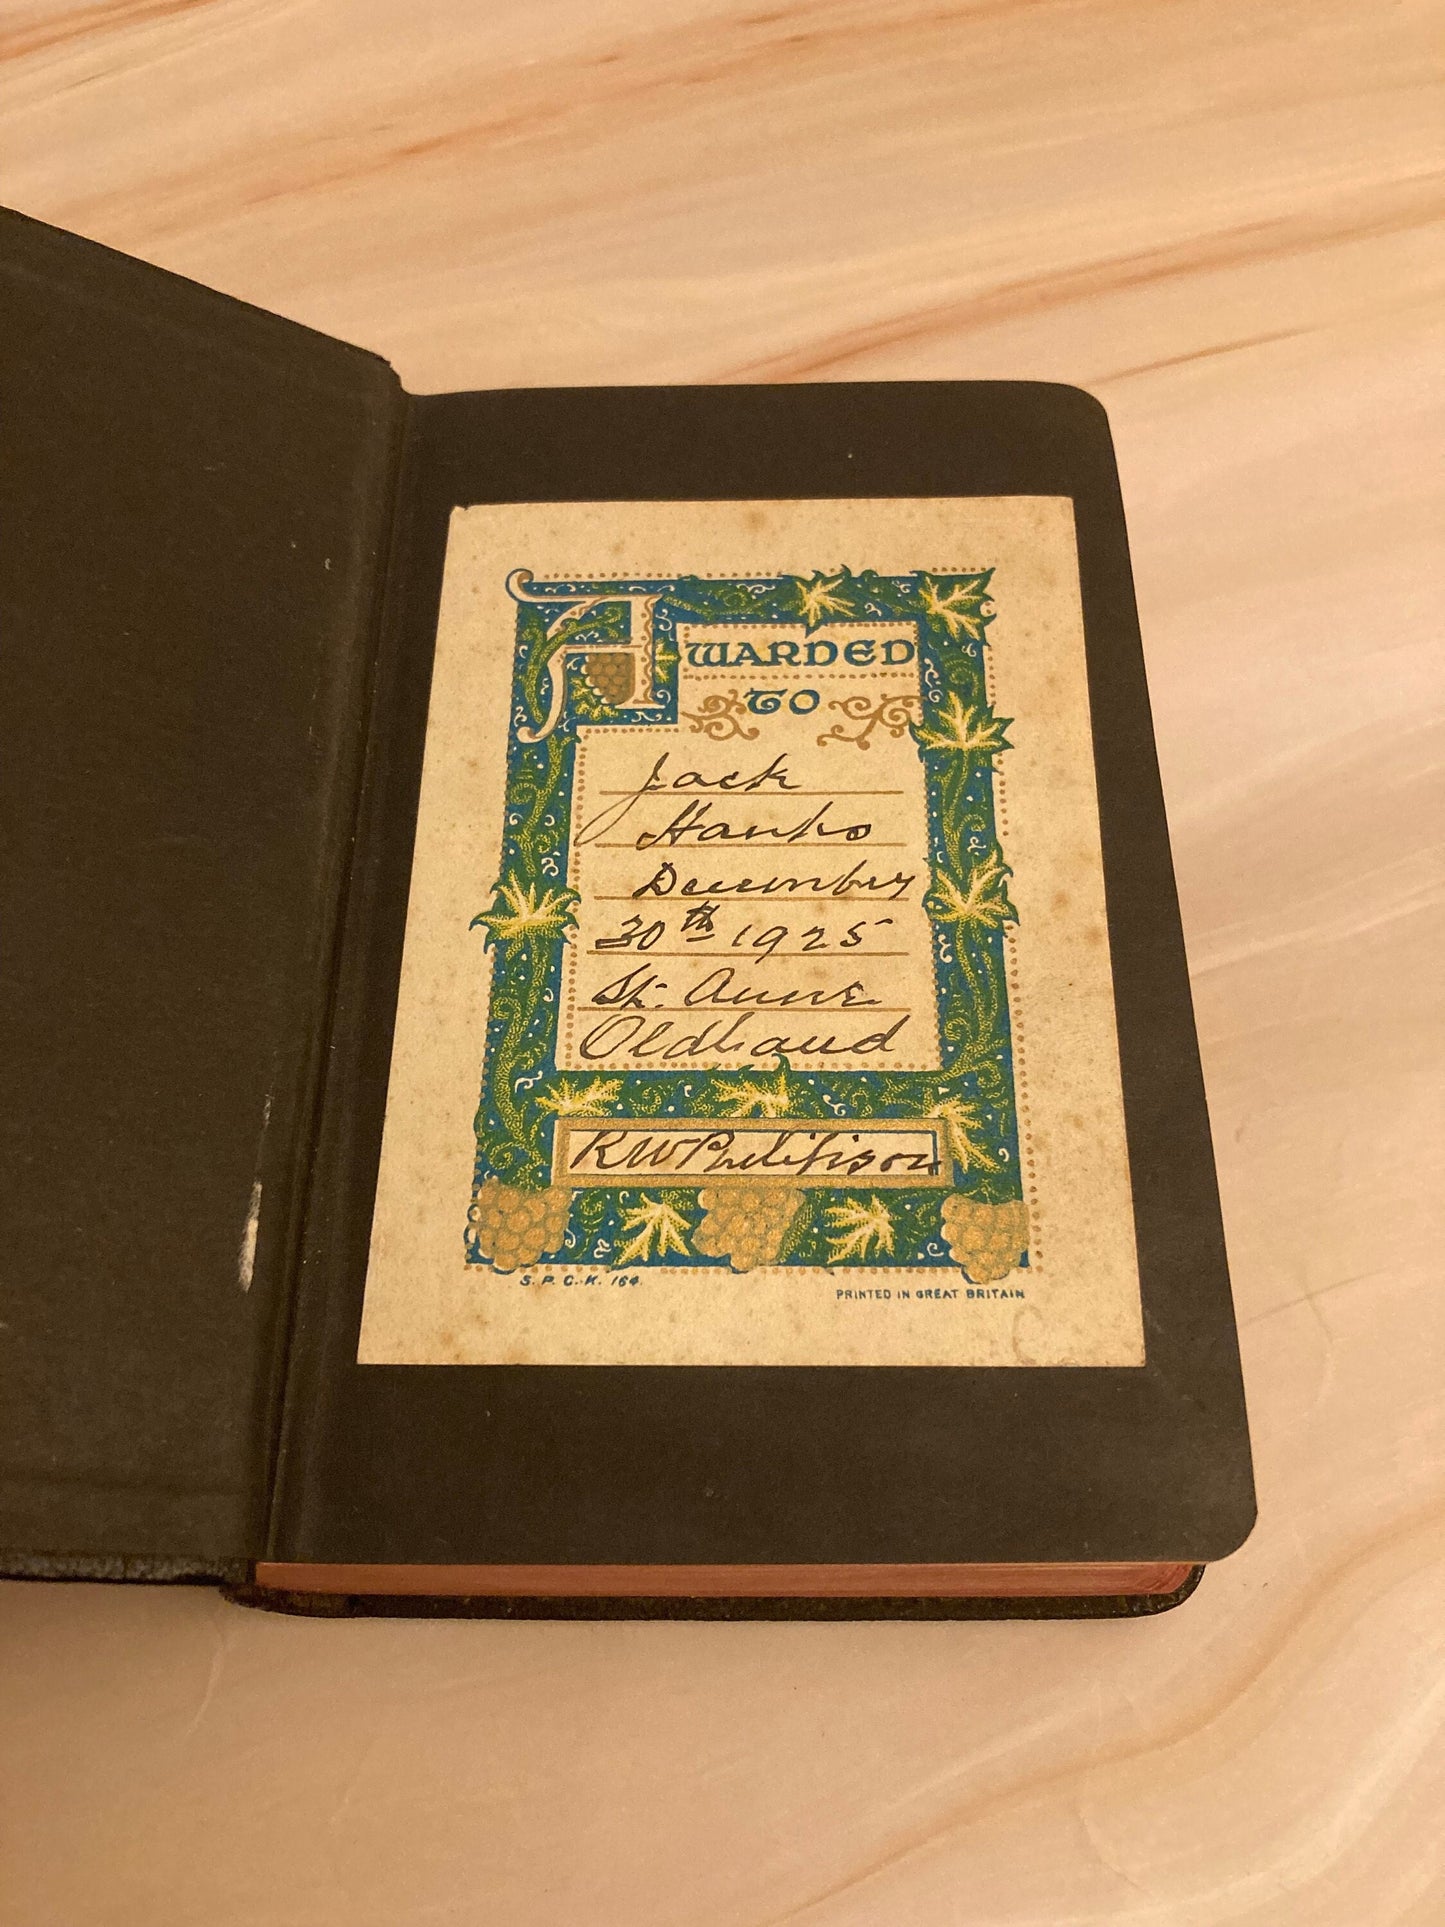 AWARDED
TO
Jack
Hanks
December
30th 1925
St. Anne
Oldland
R W Philipson
S. P. C. K. 164.
PRINTED IN GREAT BRITAIN